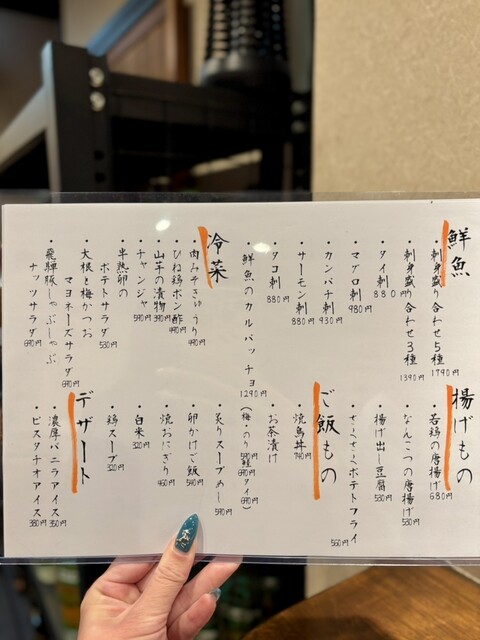 鮮魚
・刺身盛り合わせ5種 1790円
・刺身盛り合わせ3種 1390円
・タイ刺 880円
・マグロ刺 980円
・カンパチ刺 930円
・サーモン刺 880円
・タコ刺 880円
・鮮魚のカルパッチョ 1290円
冷菜
・肉みそきゅうり 490円
・ひね鶏ポン酢 490円
・山芋の漬物 390円
・チャンジャ 590円
・半熟卵の
ポテトサラダ 530円
・大根と梅かつお
マヨネーズサラダ 690円
・飛騨豚しゃぶしゃぶ
ナッツサラダ 690円
揚げもの
・若鶏の唐揚げ 680円
・なんこつの唐揚げ 530円
・揚げ出し豆腐 530円
ポテトフライ 560円
ご飯もの
・焼鳥丼 740円
・お茶漬け
(梅・のり 590円 鮭 690円 タイ 690円)
・炙りスープめし 590円
・卵かけご飯 540円
・焼おにぎり 460円
・白米 320円
・鶏スープ 320円
デザート
・濃厚バニラアイス 350円
・ピスタチオアイス 380円